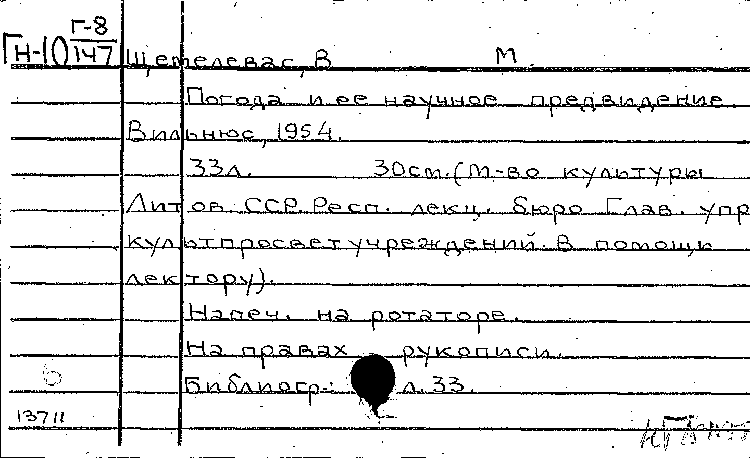 Г-8
Гн-10 147 Щетелевас, В М.
Погода и ее научное предвидение.
Вильнюс, 1954.
33л. 30см. (М-во культуры
Литов. ССР. Респ. лекц. бюро Глав. упр
культпросветучреждений. В помощь
лектору).
Напеч. на ротаторе.
На правах рукописи.
Библиогр.: л. 33.
Б
13711